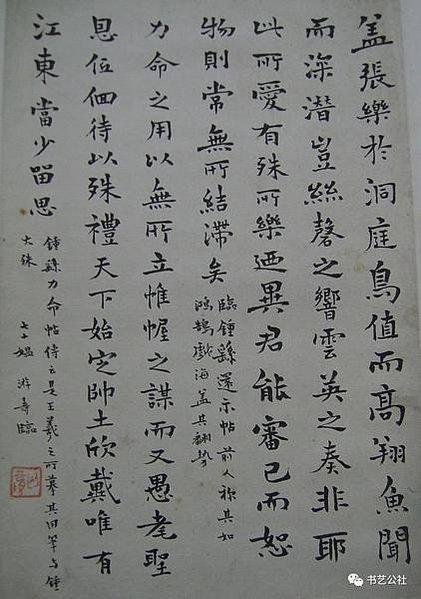 盖張樂於洞庭鳥值而高翔魚聞
而深潛豈絲磬之響雲英之奏非耶
此所愛有殊所樂迺異君能審己而恕
物則常無所結滯矣
臨鍾繇還示帖前人称其如
鴻鵠戲海盖其翻势
力命之用以無所立帷幄之謀而又愚耄聖
恩伍佪待以殊禮天下始定帥土欣戴唯有
江東當少留思
鍾繇力命帖傳之是王羲之所摹其用笔与鍾
大殊 七十媪 游壽臨
书艺公社